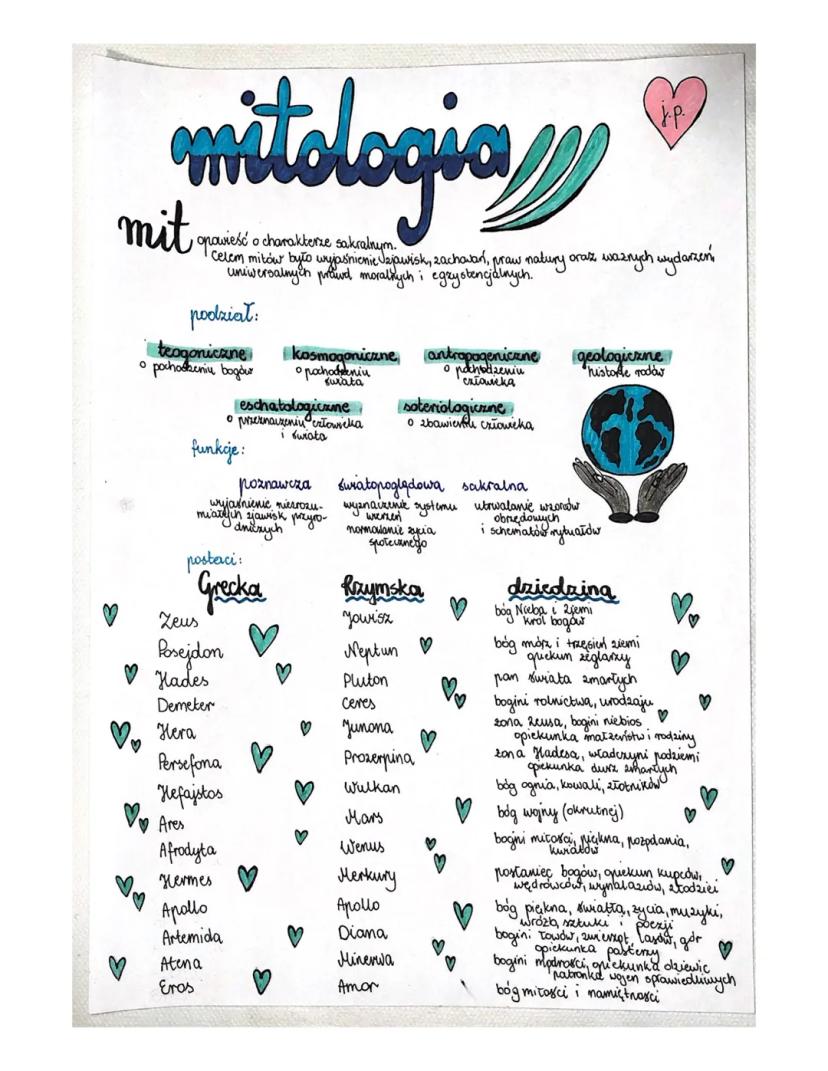 mitologia
j.p.
mit opowieść o charakterze sakralnym.
Celem mitów było wyjaśnienie zjawisk, zachowań, praw natury oraz ważnych wydarzeń,
uniwersalnych prawd moralnych i egzystencjalnych.
podział:
teogoniczne kosmogoniczne antropogeniczne geologiczne
o pochodzeniu bogów o pochodzeniu o pochodzeniu historie rodów
świata człowieka
eschatologiczne soteriologiczne
o przeznaczeniu człowieka o zbawieniu człowieka
i świata
funkcje:
poznawcza światopoglądowa sakralna
wyjaśnienie niezrozu- wyznaczenie systemu utrwalanie wzorców
miałych zjawisk przyro- wierzeń obrzędowych
dniczych normowanie życia i schematów rytuałów
społecznego
postaci:
Grecka Rzymska dziedzina
Zeus Jowisz bóg Nieba i Ziemi
król bogów
Posejdon Neptun bóg mórz i trzęsień ziemi
opiekun żeglarzy
Hades Pluton pan świata zmarłych
Demeter Ceres bogini rolnictwa, urodzaju
Hera Junona żona Zeusa, bogini niebios
opiekunka małżeństw i rodziny
Persefona Prozerpina żona Hadesa, władczyni podziemi
opiekunka dusz zmarłych
Hefajstos Wulkan bóg ognia, kowali, złotników
Ares Mars bóg wojny (okrutnej)
Afrodyta Wenus bogini miłości, piękna, pożądania,
kwiatów
Hermes Merkury posłaniec bogów, opiekun kupców,
wędrowców, wynalazców, złodziei
Apollo Apollo bóg piękna, światła, życia, muzyki,
wróżb, sztuki i poezji
Artemida Diana bogini łowów, zwierząt, lasów, gór
opiekunka pasterzy
Atena Minerwa bogini mądrości, opiekunka dziewic
patronka wojen sprawiedliwych
Eros Amor bóg miłości i namiętności